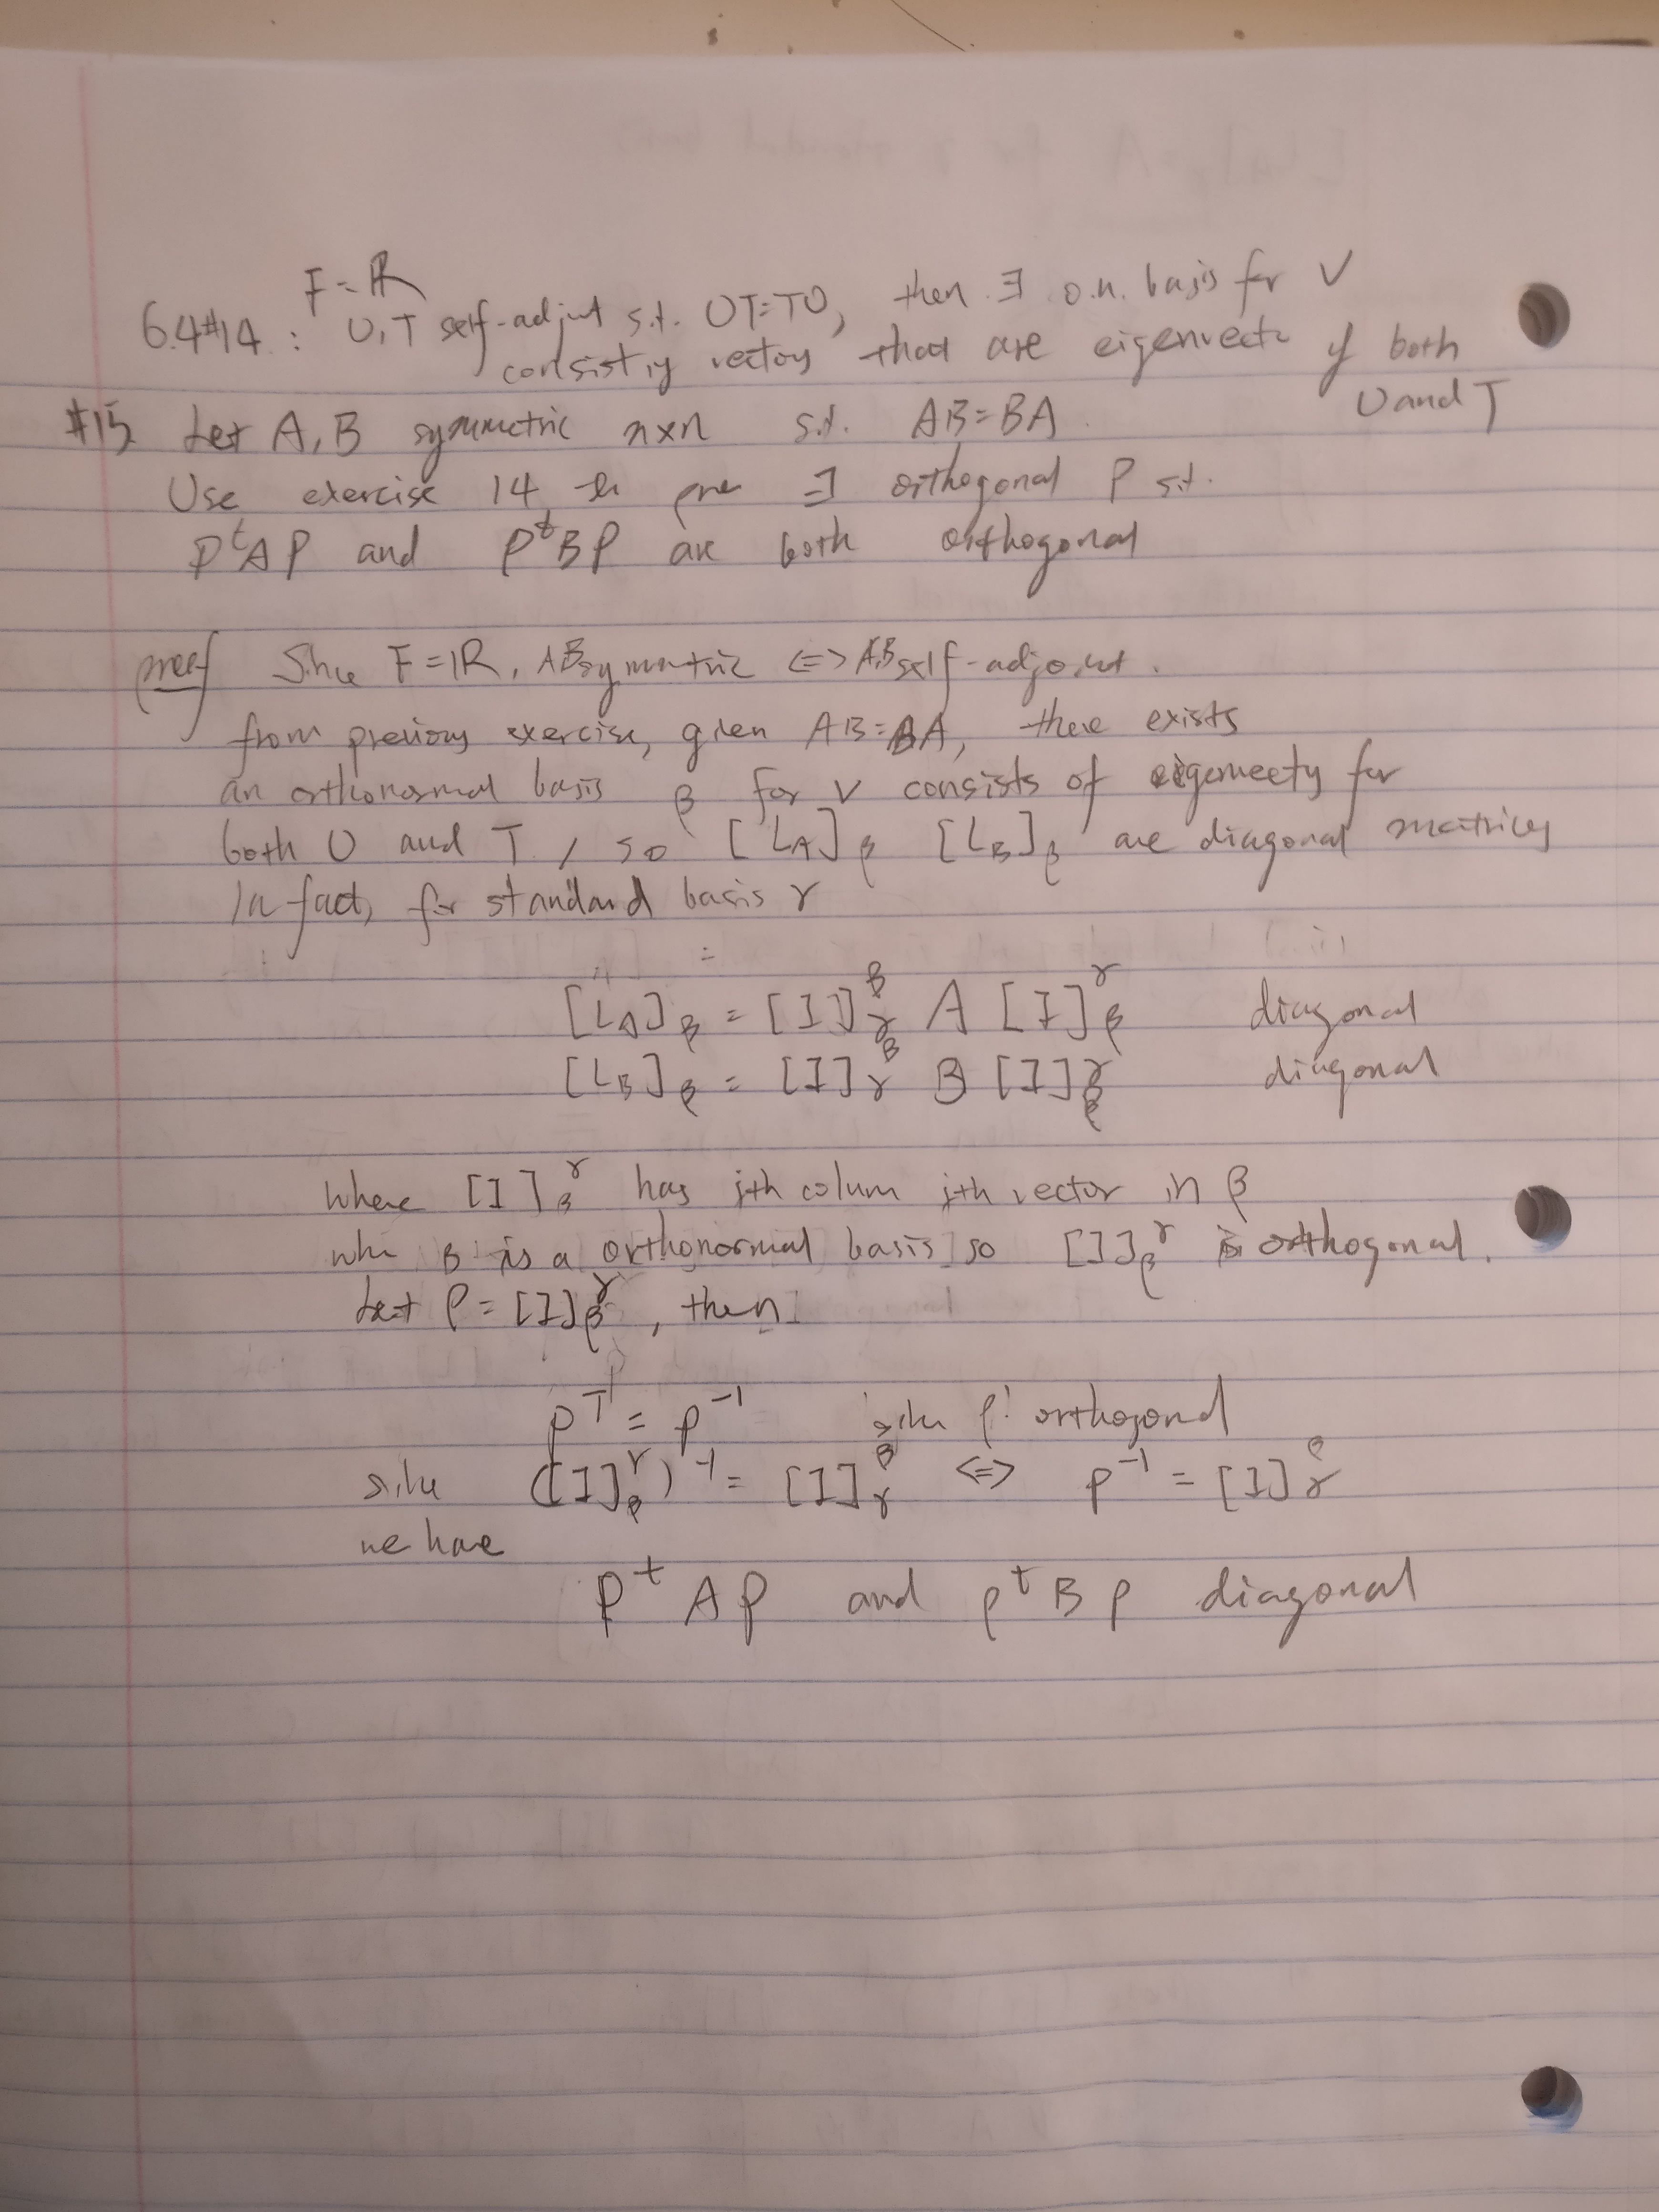 F=R
6.4#14 : U,T self-adjoint s.t. UT=TU, then ∃ o.n. basis for V
consisting vectors that are eigenvectors of both
U and T
#15 Let A,B symmetric n×n s.t. AB=BA.
Use exercise 14 to prove ∃ orthogonal P s.t.
PᵗAP and PᵗBP are both orthogonal
proof Since F=IR, A,B symmetric <=> A,B self-adjoint.
from previous exercise, given AB=BA, there exists
an orthonormal basis β for V consists of eigenvectors for
both U and T, so [L_A]_β [L_B]_β are diagonal matrices
In fact, for standard basis γ
=
[L_A]_β = [I]_γ^β A [I]_β^γ diagonal
[L_B]_β = [I]_γ^β B [I]_β^γ diagonal
where [I]_β^γ has jth colum jth vector in β
β is a orthonormal basis so [I]_β^γ is orthogonal.
Let P=[I]_β^γ, then
P^T = P^-1 since P orthogonal
since ([I]_β^γ)^-1 = [I]_γ^β <=> P^-1 = [I]_γ^β
we have
PᵗAP and PᵗBP diagonal